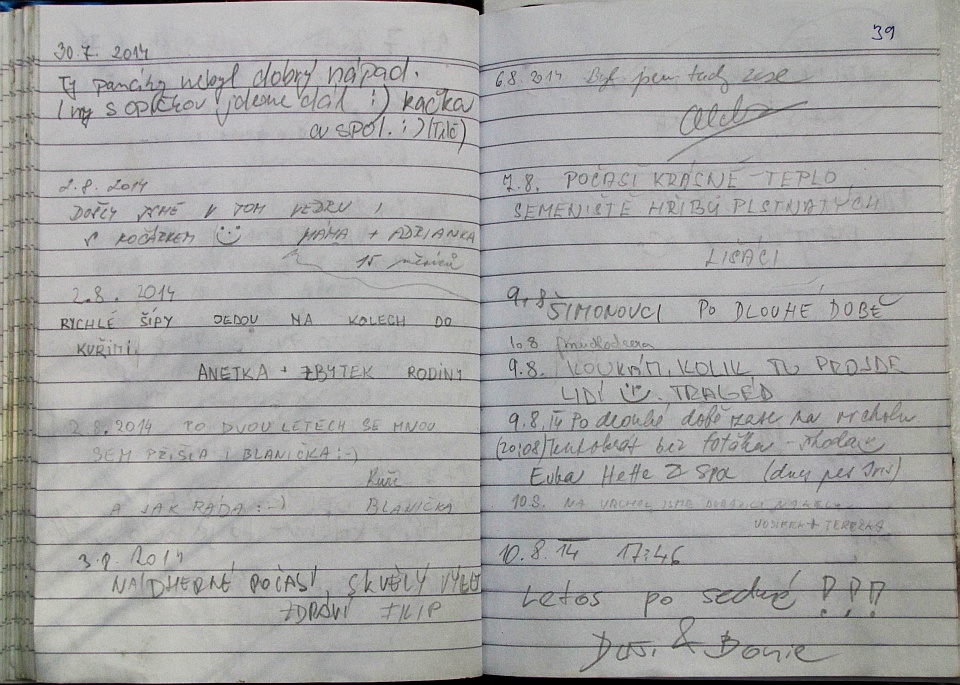 30.7. 2014
Ty pancíře nebyl dobrý nápad.
my s opičkou jdeme dál :) kačka
a SPOL. :)
2.8. 2014
DOŠLY JSME V TOM VEDRU I
S KOČÁRKEM
MÁMA + ADRIANKA
15 měsíců
2.8. 2014
RYCHLÉ ŠÍPY JEDOU NA KOLECH DO
KUŘIMI,
ANETKA + ZBYTEK RODINY
2.8.2014 PO DVOU LETECH SE MNOU
SEM PŘIŠLA I BLANIČKA :-)
Kuře
A JAK RÁDA :-)
BLANIČKA
3.8. 2014
NÁDHERNÉ POČASÍ, SKVĚLÝ VÝLET
ZDRAVÍ FILIP
39
6.8.2014 Byl jsem tady zase
7.8. POČASÍ KRÁSNÉ - TEPLO,
SEMENIŠTĚ HŘIBŮ PLSTNATÝCH
LIŠÁCI
9.8 ŠIMONOVCI PO DLOUHÉ DOBĚ
10.8
9.8. KOUKÁM, KOLIK TU PROJDE
LIDÍ TRAGÉD
9.8.14 Po dlouhé době zase na vrcholu
(20:08) Tentokrát bez foťáku - škoda
10.8. NA VRCHOL JSME DORAZILI
TEREZKA
10.8.14 17:46
Letos po sedmé !!!
& Bonie